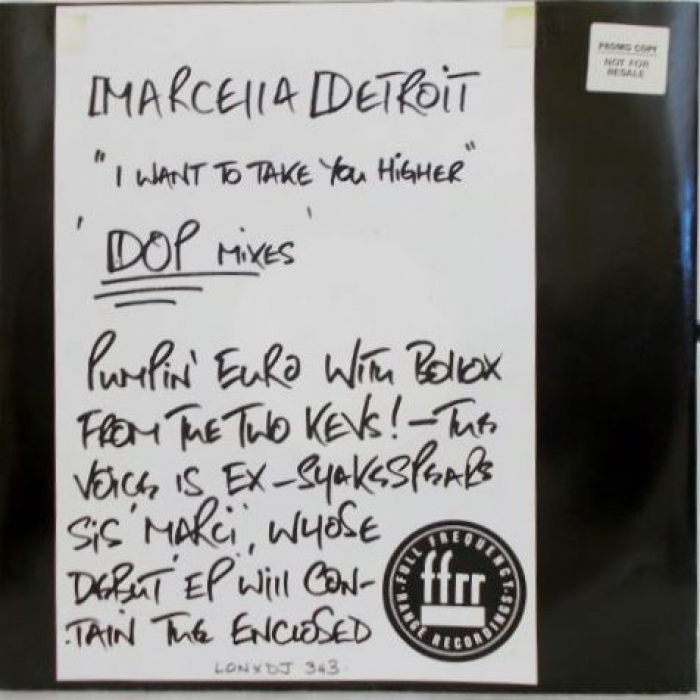 MARCELLA DETROIT
PROMO COPY
NOT FOR
RESALE
"I WANT TO TAKE YOU HIGHER"
'DOP MIXES'
PUMPIN' EURO WITH BOLLOX
FROM THE TWO KEVS! – THE
VOICE IS EX-SHAKESPEARS
SIS 'MARCI', WHOSE
DEBUT EP WILL CON-
TAIN THE ENCLOSED
FULL FREQUENCY
ffrr
RANGE RECORDINGS
LONXDJ 343